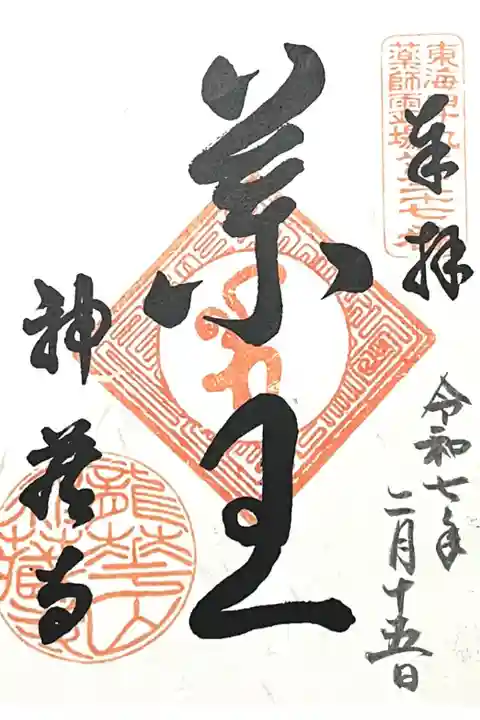 東海四十九
薬師霊場
奉拝
令和七年
二月十五日
薬王
神蔵寺
龍華山
神蔵寺